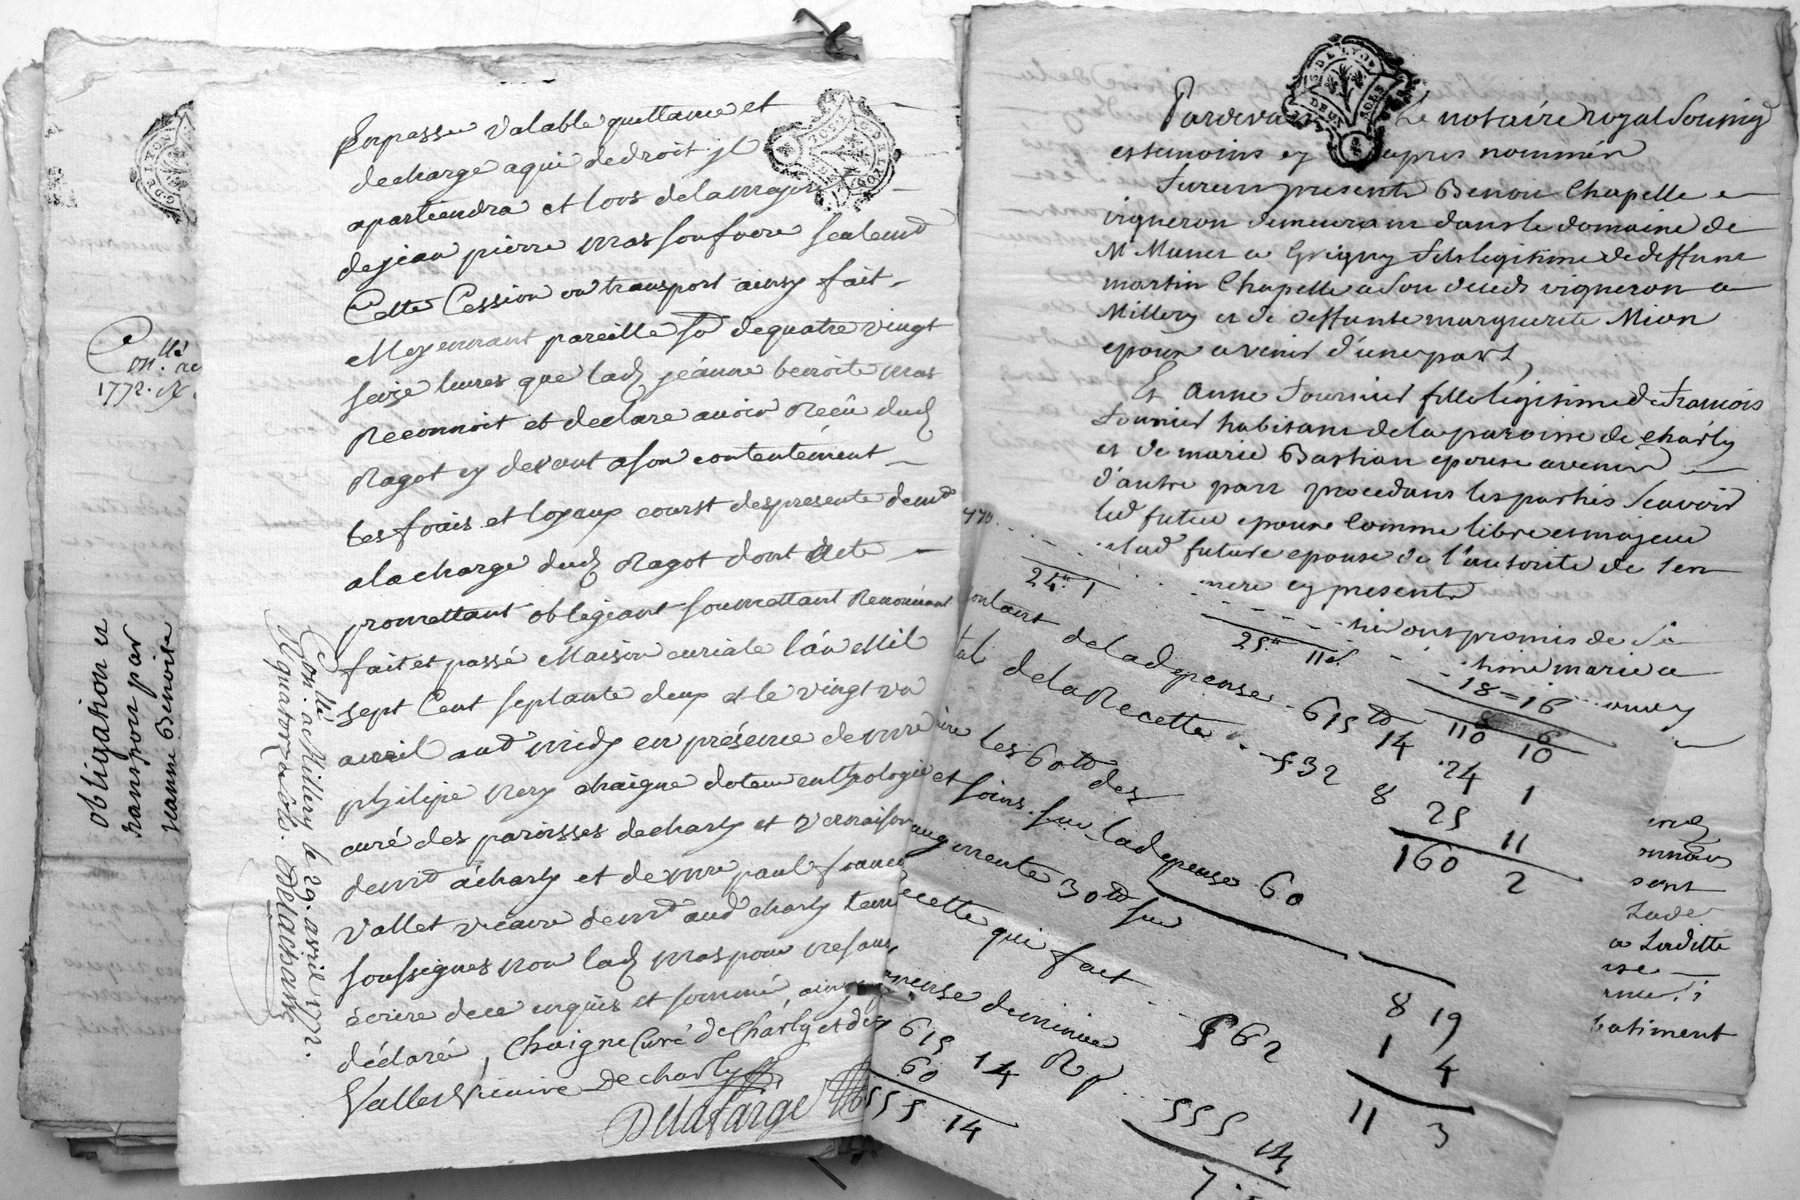 En passer valable quittance et
decharge a qui de droit il
apartiendra et lors de la major
de jean pierre mas son frere seulemt
Cette Cession ou transport ainsy fait
Moyennant pareille so de quatre vingt
seize livres que lad jeanne benoite mas
Reconnoit et declare avoir Recû dud
Ragot cy devant a son contentément
les frais et loyaux coust des presente demt
a la charge dud Ragot dont Acte
promettant obligeant soumettant Renonceant
fait et passé Maison curiale l'an Mil
sept Cent septante deux et le vingt un
avril avt midy en présence de mre
philipe Rery chaigne doteur en theologie
curé des paroisses de charly et vernaison
demt a charly et de mre paul francois
Vallet vicaire demt aud charly temoins
soussignes non lad mas pour ne savoir
écrire de ce enquis et sommé, ainsy
déclaré, Chaigne Curé de Charly et de
Vallet Vicaire de charly
Delafarge
Conllé a Millery le 29. avril 1772.
Delafarge
Conllé
1772.
obligation et
transport par
jeanne Benoite
G DE LYON
G. DE LYON
Pardevant Le notaire royal soussigné
et temoins cy apres nommés
Furent presents Benoit Chapelle
vigneron demeurant dans le domaine de
Mr Munet a Grigny fils legitime de deffunt
martin Chapelle a son deceds vigneron a
Millery et de deffunte marguerite Mion
epoux avenir d'une part,
Et anne Fournier fille legitime de francois
Fournier habitant de la paroisse de charly
et de marie Bastian epouse avenir
d'autre part procedants les parties scavoir
led futur epoux Comme libre et majeur
et lad future epouse de l'autorité de son
mere cy presente
ont promis de se
time mariea
sent
a Laditte
batiment
770.
24.tt 1
25.tt 11d.
18 = 16
montant de la depense 615tt 14
110 10
total de la Recette 532 8
24 1
les 60tt des
25 11
et soins sur la depense 60
160 2
augmente 30tt sur
recette qui fait 562
8 19
1 4
11 3
depense diminue
615 14
60
555 14
Rp 555 14
7